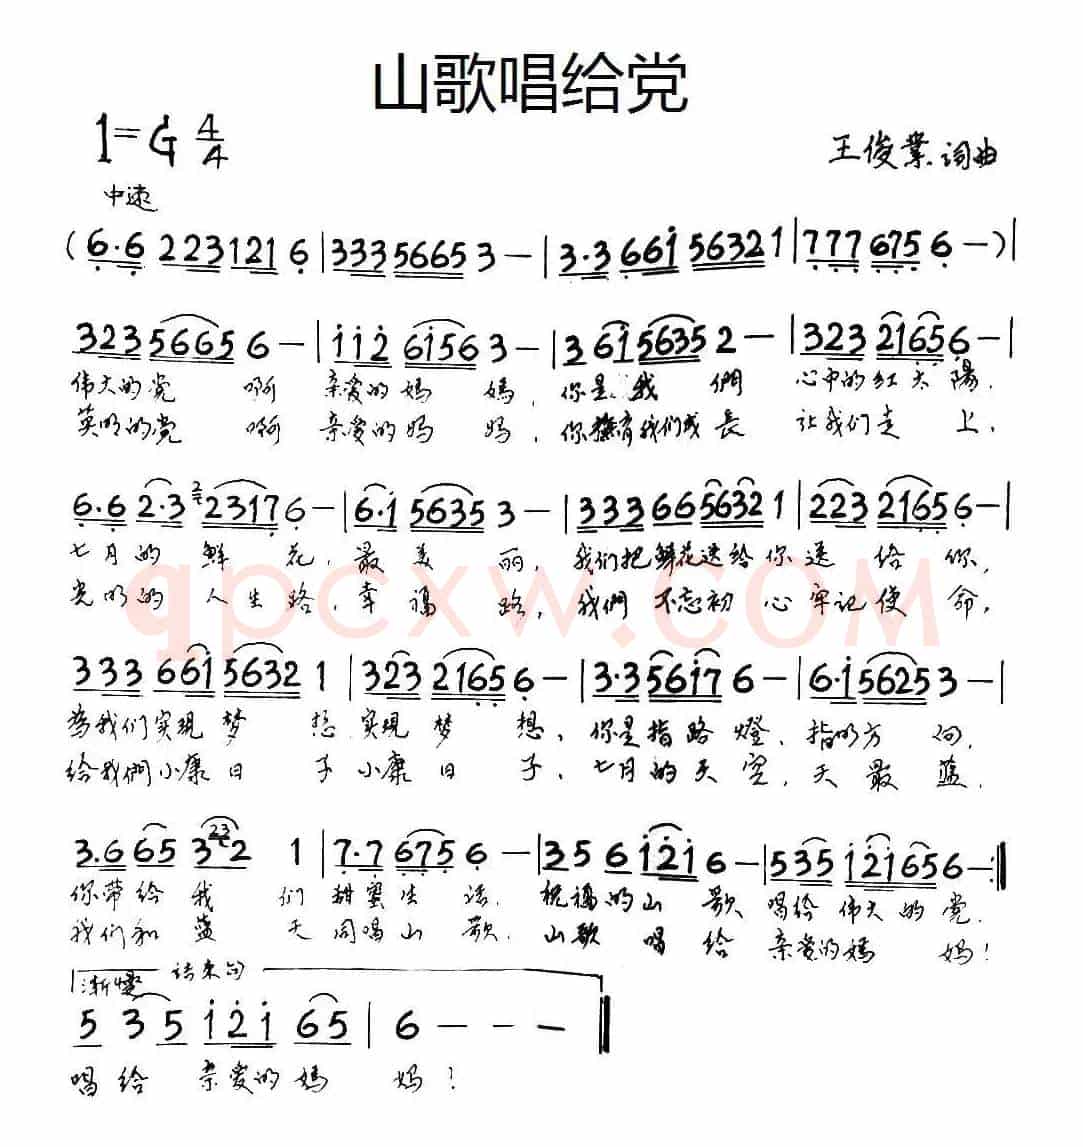 山歌唱给党
1=G 4/4
王俊業 词曲
中速
(6·6 223121 6 | 333 5665 3 — | 3·3 661 56321 | 777 675 6 —) |
323 5665 6 — | 112 6156 3 — | 361 5635 2 — | 323 2165 6 — |
伟大的党 啊 亲爱的妈 媽,你是我 們 心中的红太 陽.
英明的党 啊 亲爱的妈 妈,你撫育我们成長 让我们走 上,
6·6 2·3 2 2317 6 — | 6·1 5635 3 — | 333 66 5632 1 | 223 2165 6 — |
七月的 鲜 花,最 美 丽,我们把鲜花送给你送 给 你,
光明的 人生路,幸 福 路,我們 不忘初 心 牢记使 命,
333 661 5632 1 | 323 2165 6 — | 3·3 5617 6 — | 6·1 5625 3 — |
為我们实现梦 想 实现 梦 想,你是指路 燈,指明方 向,
给我們小康日 子 小康 日 子,七月的天 空,天 最 蓝,
3·6 65 3 23 2 1 | 7·7 675 6 — | 35 6 121 6 — | 535 121 65 6 — :|
你带给 我 们 甜蜜生 活.祝福的山 歌 唱给 伟大的 党.
我们和 蓝 天 同唱山 歌.山歌 唱 给 亲爱的媽 妈!
渐慢 结束句
5 3 5 1 2 1 6 5 | 6 — — —
唱 给 亲爱的 媽 妈!
qpcxw.COM